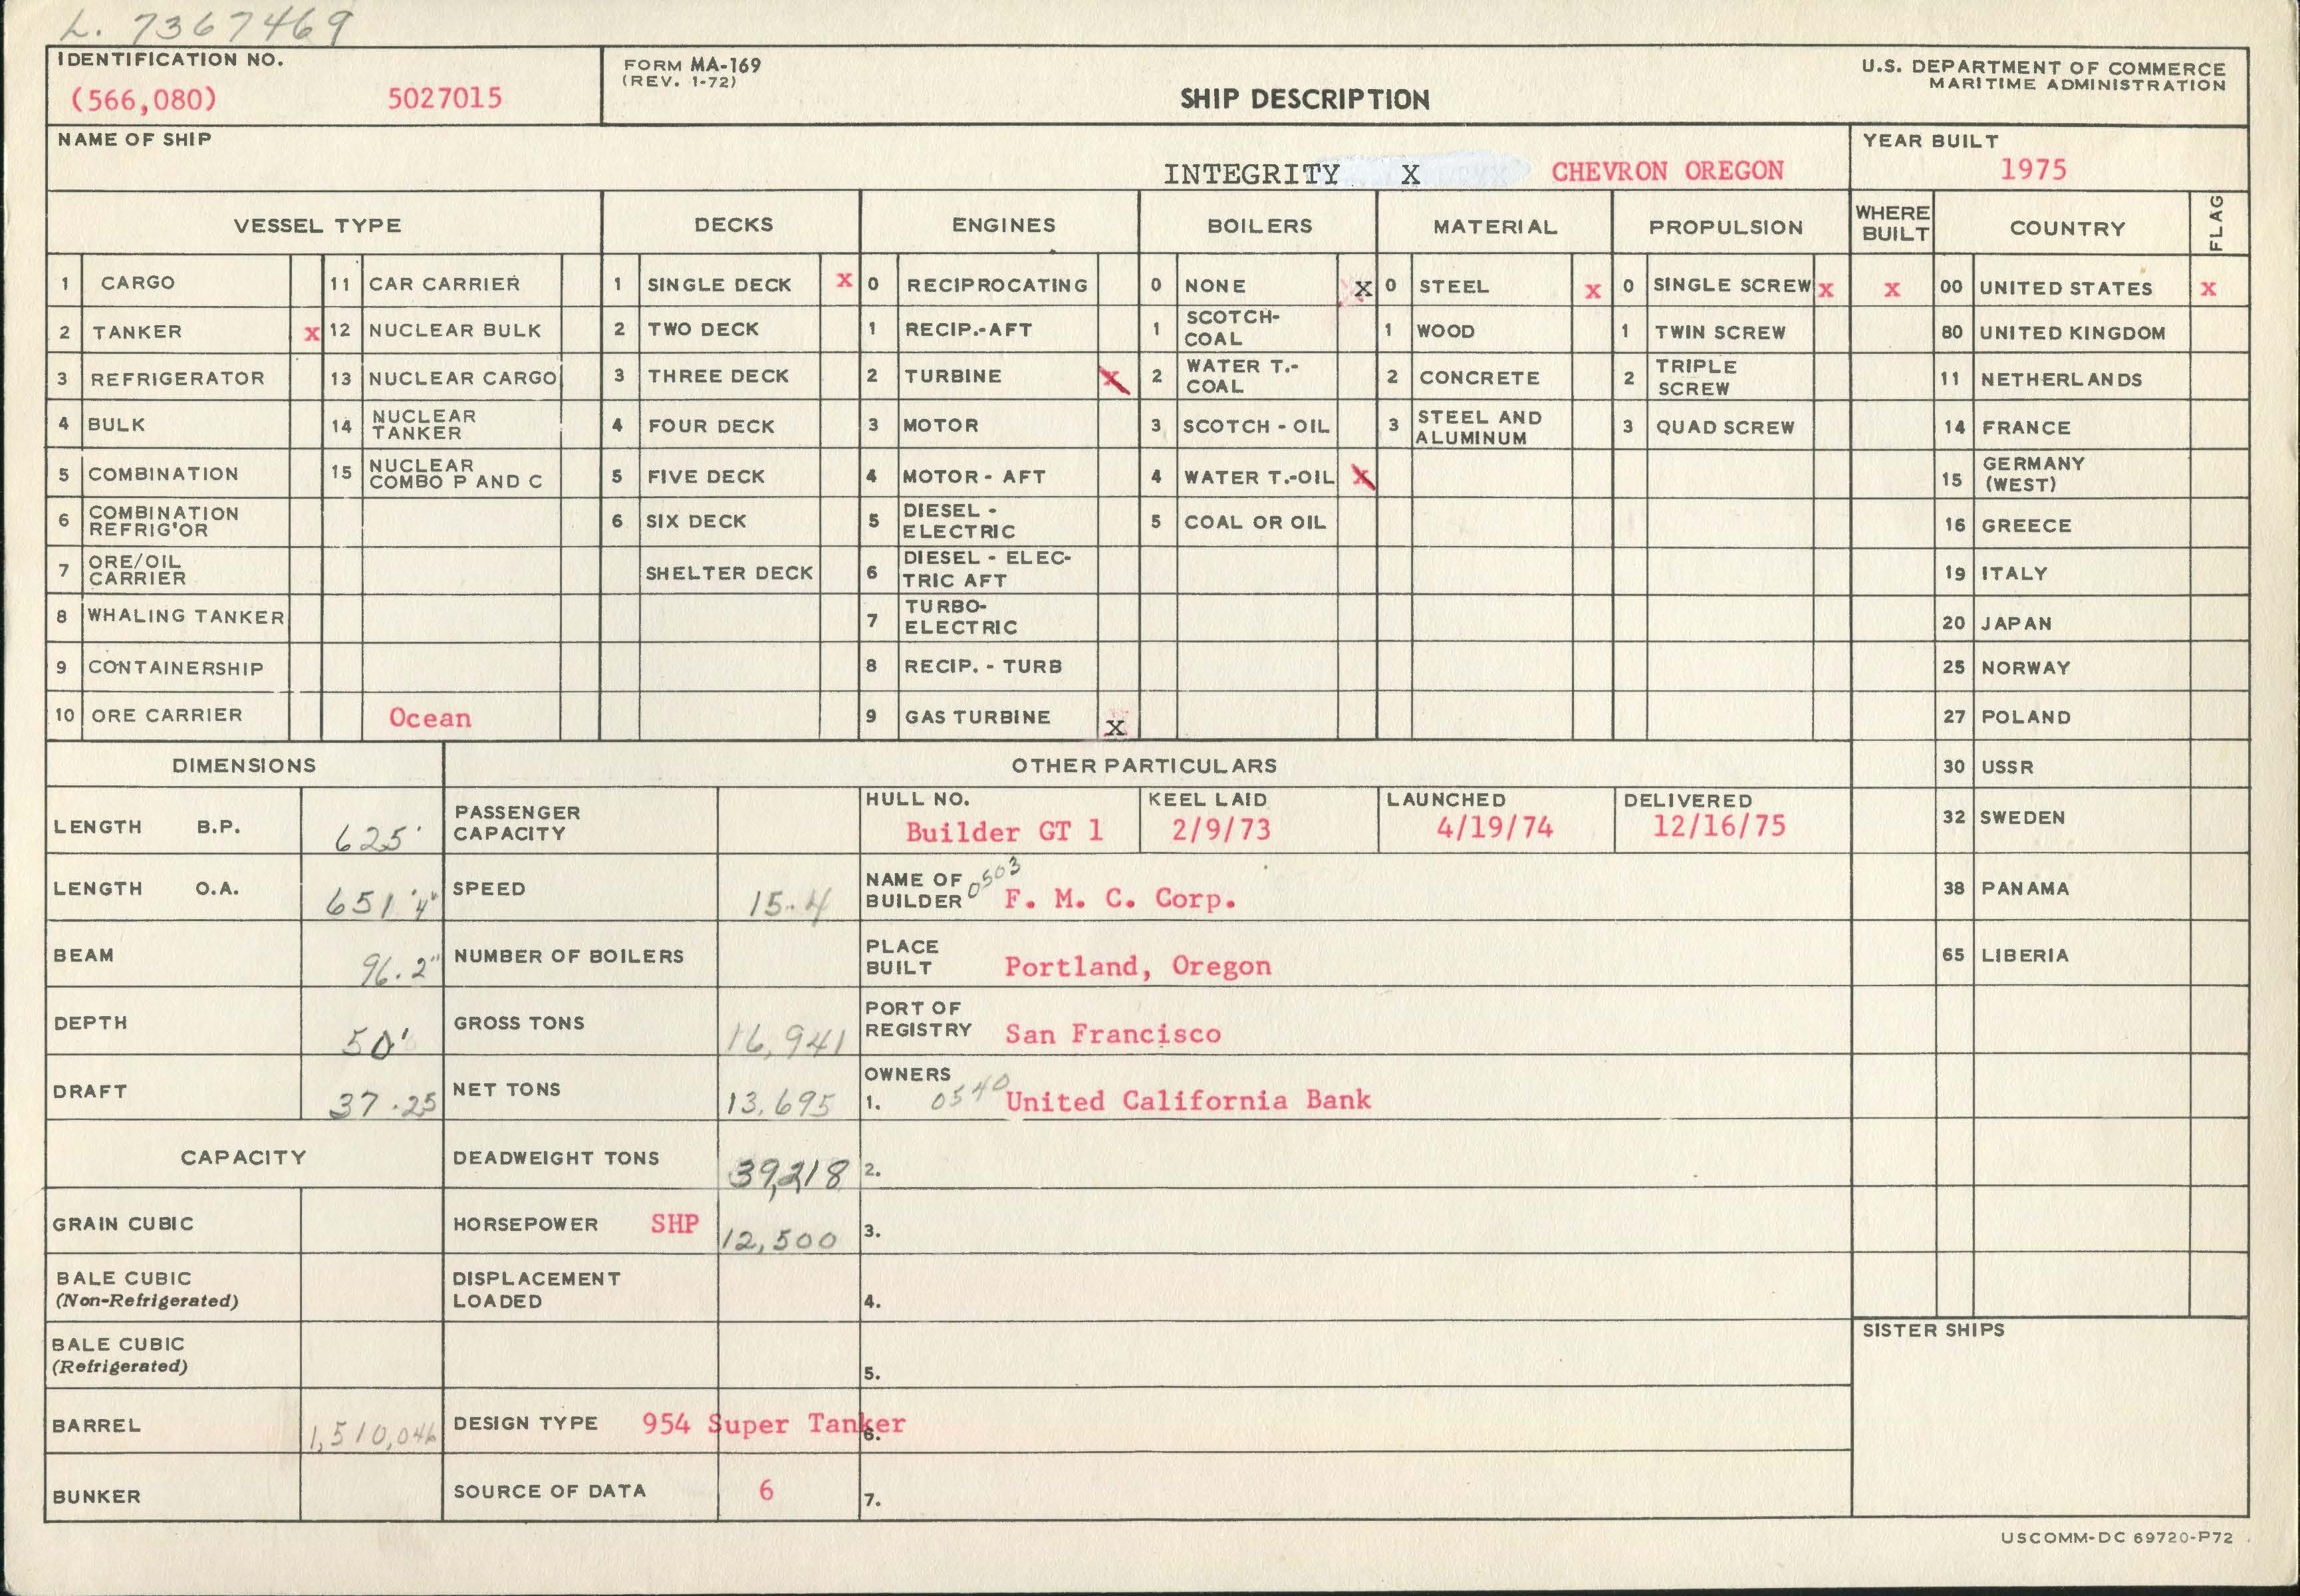 L. 7367469
IDENTIFICATION NO.
(566,080) 5027015
FORM MA-169
(REV. 1-72)
SHIP DESCRIPTION
U.S. DEPARTMENT OF COMMERCE
MARITIME ADMINISTRATION
NAME OF SHIP
INTEGRITY X CHEVRON OREGON
YEAR BUILT
1975
VESSEL TYPE DECKS ENGINES BOILERS MATERIAL PROPULSION WHERE BUILT COUNTRY FLAG
1 CARGO 11 CAR CARRIER 1 SINGLE DECK X 0 RECIPROCATING 0 NONE X 0 STEEL X 0 SINGLE SCREW X X 00 UNITED STATES X
2 TANKER X 12 NUCLEAR BULK 2 TWO DECK 1 RECIP.-AFT 1 SCOTCH-COAL 1 WOOD 1 TWIN SCREW 80 UNITED KINGDOM
3 REFRIGERATOR 13 NUCLEAR CARGO 3 THREE DECK 2 TURBINE X 2 WATER T.-COAL 2 CONCRETE 2 TRIPLE SCREW 11 NETHERLANDS
4 BULK 14 NUCLEAR TANKER 4 FOUR DECK 3 MOTOR 3 SCOTCH - OIL 3 STEEL AND ALUMINUM 3 QUAD SCREW 14 FRANCE
5 COMBINATION 15 NUCLEAR COMBO P AND C 5 FIVE DECK 4 MOTOR - AFT 4 WATER T.-OIL X 15 GERMANY (WEST)
6 COMBINATION REFRIG'OR 6 SIX DECK 5 DIESEL - ELECTRIC 5 COAL OR OIL 16 GREECE
7 ORE/OIL CARRIER SHELTER DECK 6 DIESEL - ELEC-TRIC AFT 19 ITALY
8 WHALING TANKER 7 TURBO-ELECTRIC 20 JAPAN
9 CONTAINERSHIP 8 RECIP. - TURB 25 NORWAY
10 ORE CARRIER Ocean 9 GAS TURBINE X 27 POLAND
DIMENSIONS OTHER PARTICULARS 30 USSR
LENGTH B.P. 625' PASSENGER CAPACITY
HULL NO. KEEL LAID LAUNCHED DELIVERED
Builder GT 1 2/9/73 4/19/74 12/16/75
32 SWEDEN
LENGTH O.A. 651'4" SPEED 15.4 NAME OF BUILDER 0503 F. M. C. Corp. 38 PANAMA
BEAM 96.2" NUMBER OF BOILERS PLACE BUILT Portland, Oregon 65 LIBERIA
DEPTH 50' GROSS TONS 16,941 PORT OF REGISTRY San Francisco
DRAFT 37.25 NET TONS 13,695 OWNERS
1. 0540 United California Bank
CAPACITY DEADWEIGHT TONS 39,218 2.
GRAIN CUBIC HORSEPOWER SHP 12,500 3.
BALE CUBIC (Non-Refrigerated) DISPLACEMENT LOADED 4.
BALE CUBIC (Refrigerated) 5.
SISTER SHIPS
BARREL 1,510,046 DESIGN TYPE 954 Super Tanker 6.
BUNKER SOURCE OF DATA 6 7.
USCOMM-DC 69720-P72